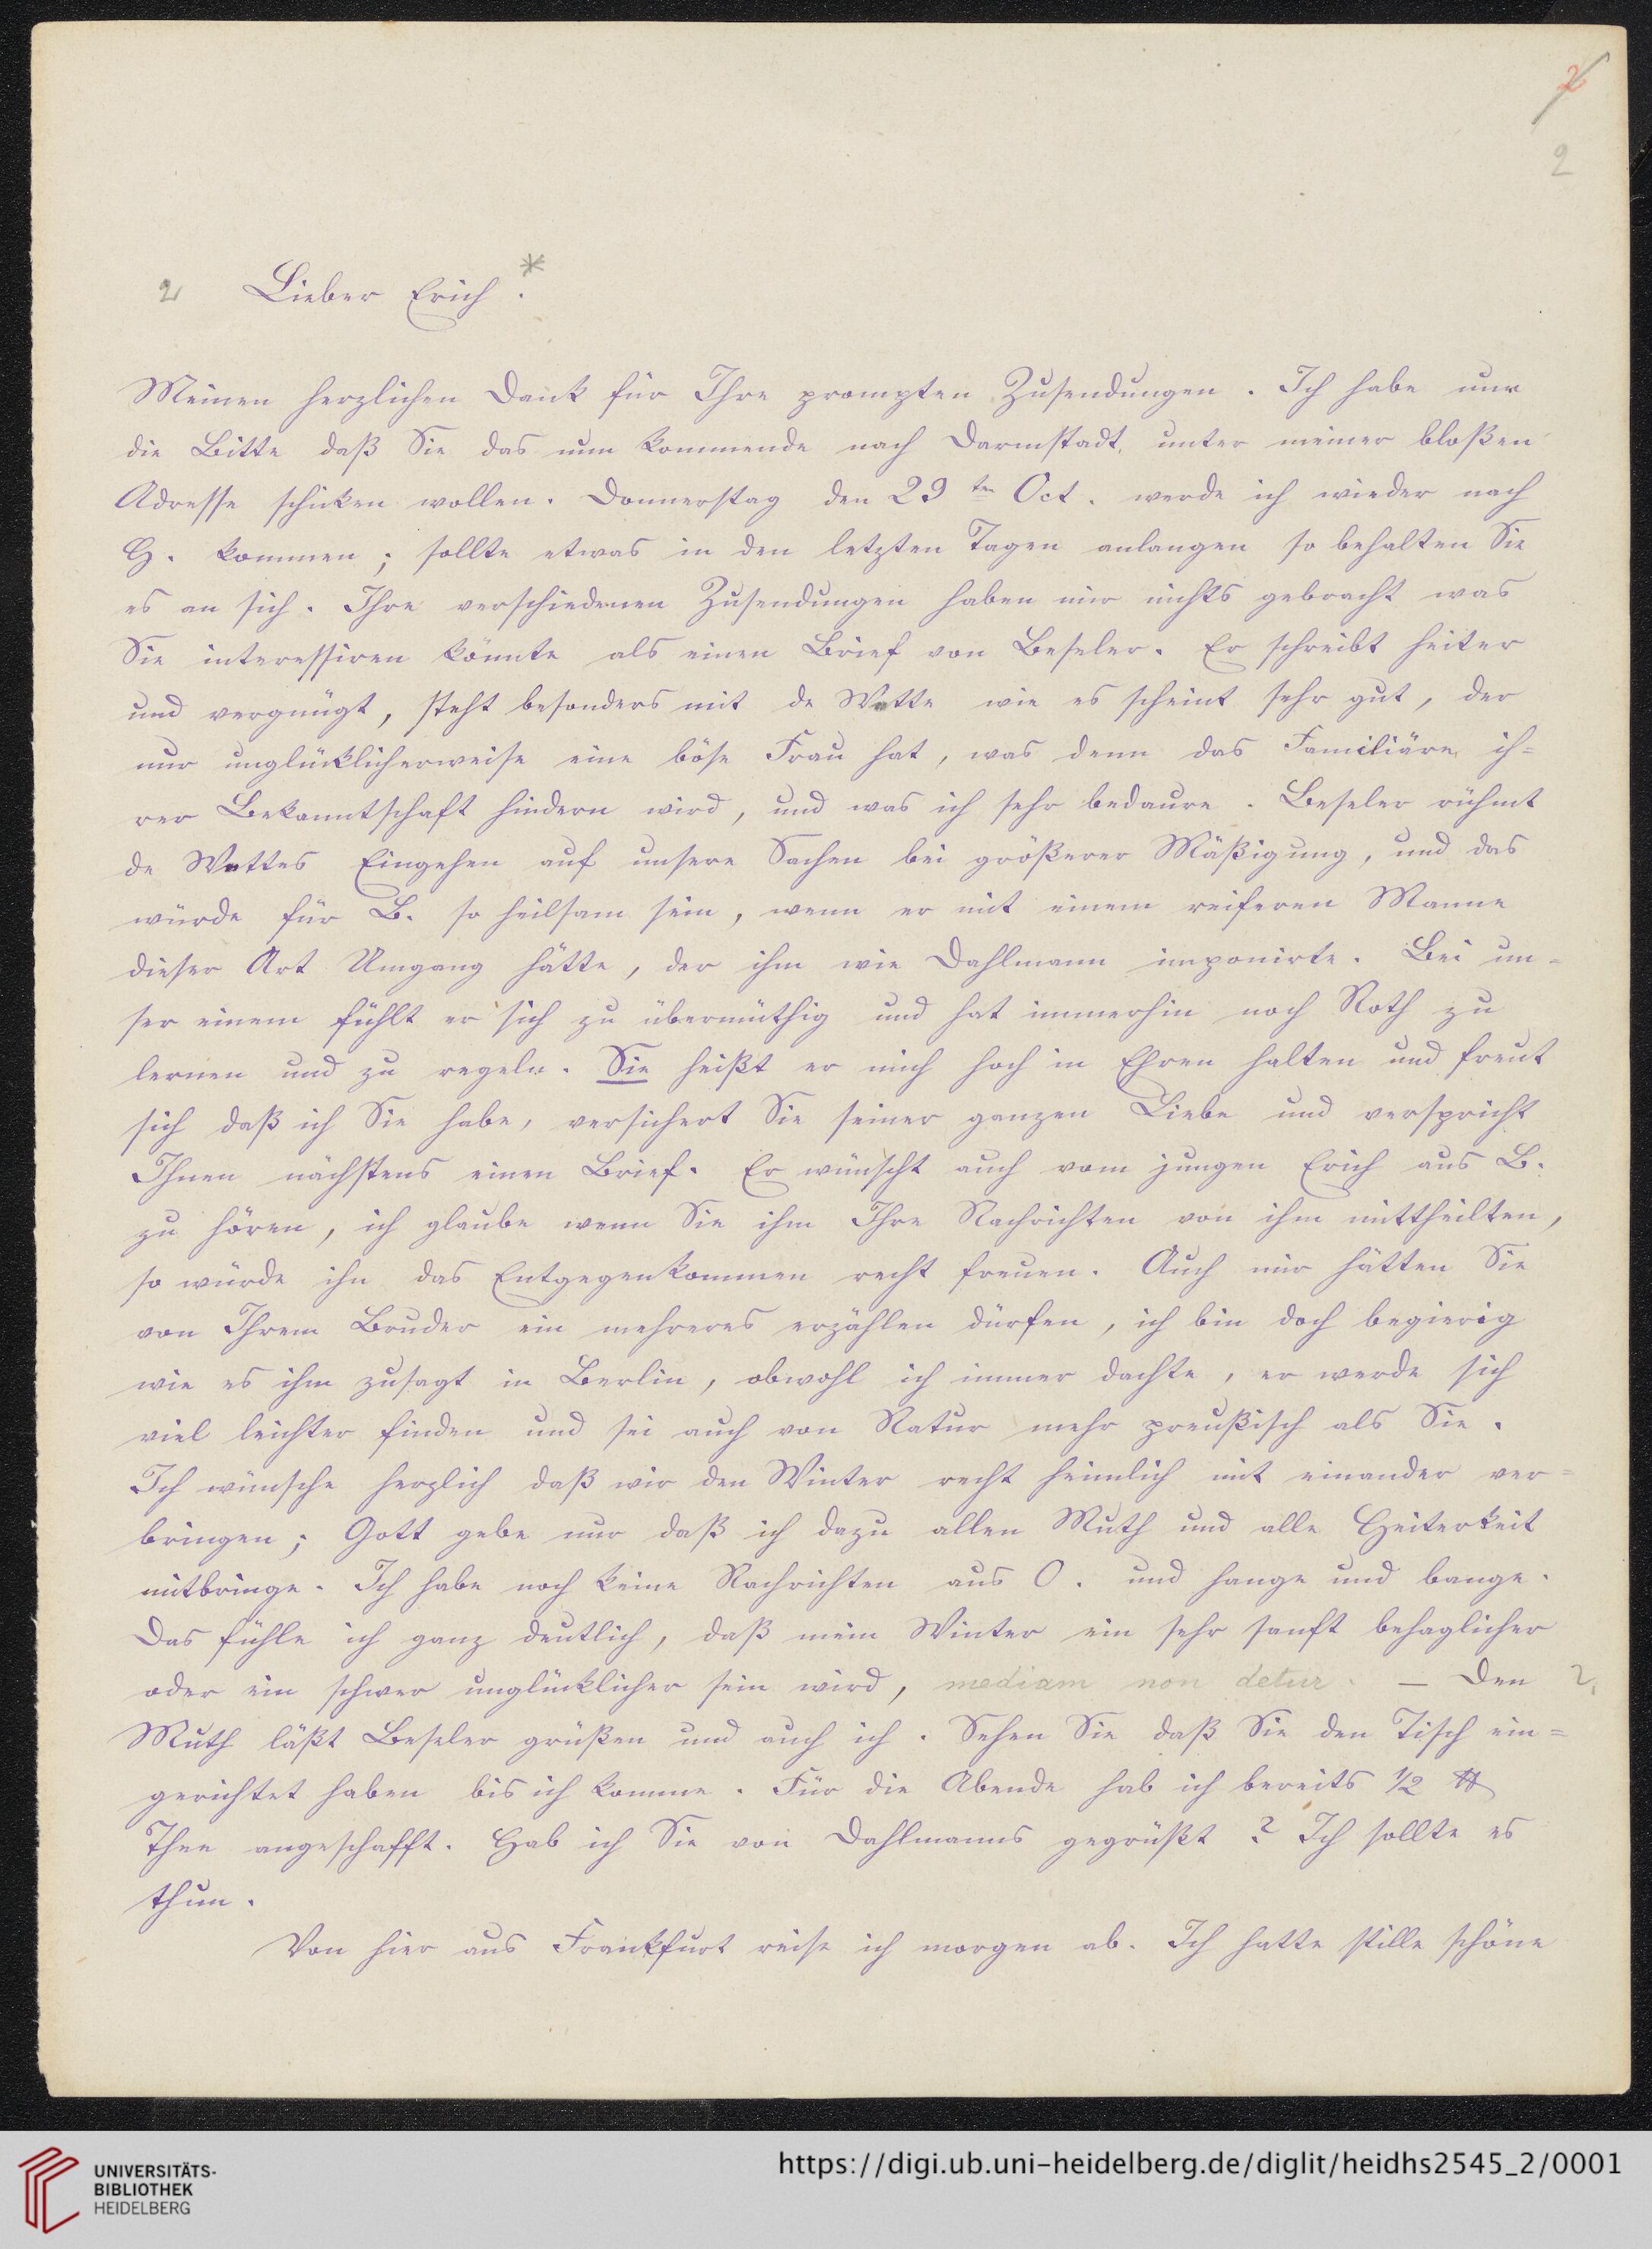 2
2
2 Lieber Erich.*
Meinen herzlichen Dank für Ihre prompten Zusendungen. Ich habe nur
die Bitte daß Sie das nun kommende nach Darmstadt, unter meiner bloßen
Adresse schicken wollen. Donnerstag den 29ten Oct. werde ich wieder nach
H. kommen; sollte etwas in den letzten Tagen anlangen so behalten Sie
es an sich. Ihre verschiedenen Zusendungen haben mir nichts gebracht was
Sie interessiren könnte als einen Brief von Beseler. Er schreibt heiter
und vergnügt, steht besonders mit de Wette wie es scheint sehr gut, der
nur unglücklicherweise eine böse Frau hat, was denn das Familiäre ih=
rer Bekanntschaft hindern wird, und was ich sehr bedaure. Beseler rühmt
de Wettes Eingehen auf unsere Sachen bei größerer Mäßigung, und das
würde für B. so heilsam sein, wenn er mit einem reiferen Manne
dieser Art Umgang hätte, der ihm wie Dahlmann imponirte. Bei un=
ser einem fühlt er sich zu übermüthig und hat immerhin noch Noth zu
lernen und zu regeln. Sie heißt er mich hoch in Ehren halten und freut
sich daß ich Sie habe, versichert Sie seiner ganzen Liebe und verspricht
Ihnen nächstens einen Brief. Er wünscht auch vom jungen Erich aus B.
zu hören, ich glaube wenn Sie ihm Ihre Nachrichten von ihm mittheilten,
so würde ihn das Entgegenkommen recht freuen. Auch mir hätten Sie
von Ihrem Bruder ein mehreres erzählen dürfen, ich bin doch begierig
wie es ihm zusagt in Berlin, obwohl ich immer dachte, er werde sich
viel leichter finden und sei auch von Natur mehr preußisch als Sie.
Ich wünsche herzlich daß wir den Winter recht heimlich mit einander ver=
bringen; Gott gebe nur daß ich dazu allen Muth und alle Heiterkeit
mitbringe. Ich habe noch keine Nachrichten aus O. und hange und bange.
Das fühle ich ganz deutlich, daß mein Winter ein sehr sanft behaglicher
oder ein schwer unglücklicher sein wird, mediam non detur. — Den ?.
Muth läßt Beseler grüßen und auch ich. Sehen Sie daß Sie den Tisch ein=
gerichtet haben bis ich komme. Für die Abende hab ich bereits 1/2 ℔
Thee angeschafft. Hab ich Sie von Dahlmanns gegrüßt? Ich sollte es
thun.
Von hier aus Frankfurt reise ich morgen ab. Ich hatte stille schöne
UNIVERSITÄTS-
BIBLIOTHEK
HEIDELBERG
https://digi.ub.uni-heidelberg.de/diglit/heidhs2545_2/0001